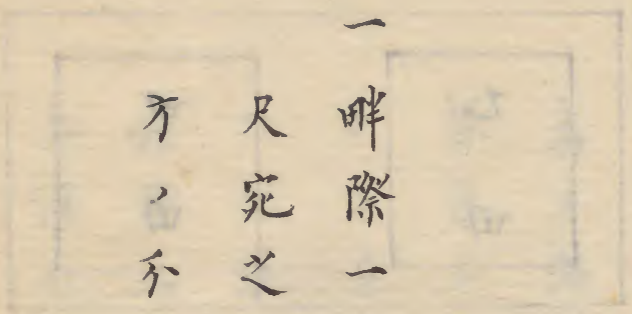 一畔際一
尺宛之
方ノ分